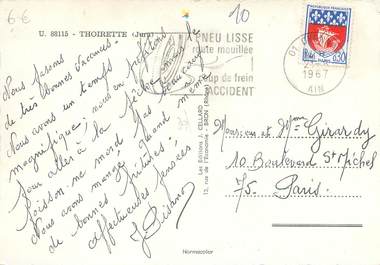 6€
10
U. 88115 - THOIRETTE (Jura)
PNEU LISSE
route mouillée
coup de frein
ACCIDENT
01
1967
AIN
0,30
Nous passons
de très bonnes vacances.
Nous avons un temps
magnifique; nous en profitons
pour aller à la pêche, mais le
poisson ne mord pas
Nous avons mangé quand même
de bonnes fritures!
Affectueuses pensées
Les Editions J. CELLARD
13, rue de l'Economie - BRON (Rhône)
Monsieur et Mme Girardy
10 Boulevard St Michel
75. Paris.